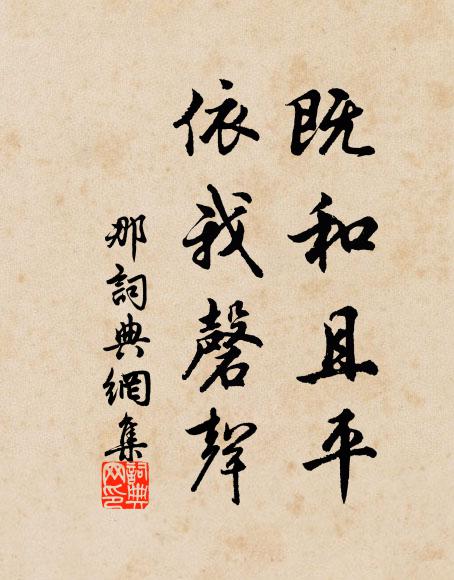 既和且平
依我磬聲
那詞典網集
詞典
网印